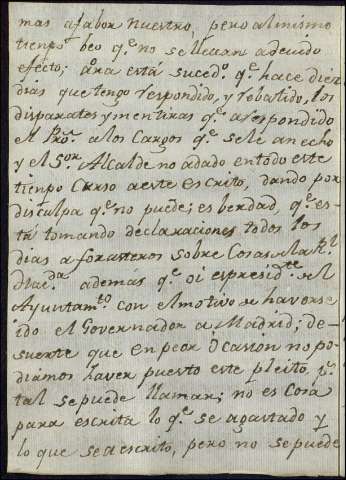 mas afabor nuestro, pero al mismo
tienpo beo q.e no se llearan adevido
efecto; aora está suced.o q.e hace diez
dias que tengo respondido, y rebatido, los
disparates y mentiras q.e a respondido
el Pro.r a los Cargos q.e se le an echo
y el S.or Alcalde no adado entodo este
tienpo Curso aeste escrito, dando por
disculpa q.e no puede; es berdad, q.e es-
tá tomando declaraciones todos los
dias a foranteros sobre Cosas de la R.l
Hac.da además q.e oi es presid.te del
Ayuntam.to con el motivo de haverse
ido el Governador a Madrid; de
suerte que en peor ocasion no po-
diamos haver puerto este pleito, q.e
tal se puede llamar; no es Cosa
para escrita lo q.e se agastado y
lo que se a escrito, pero no se puede